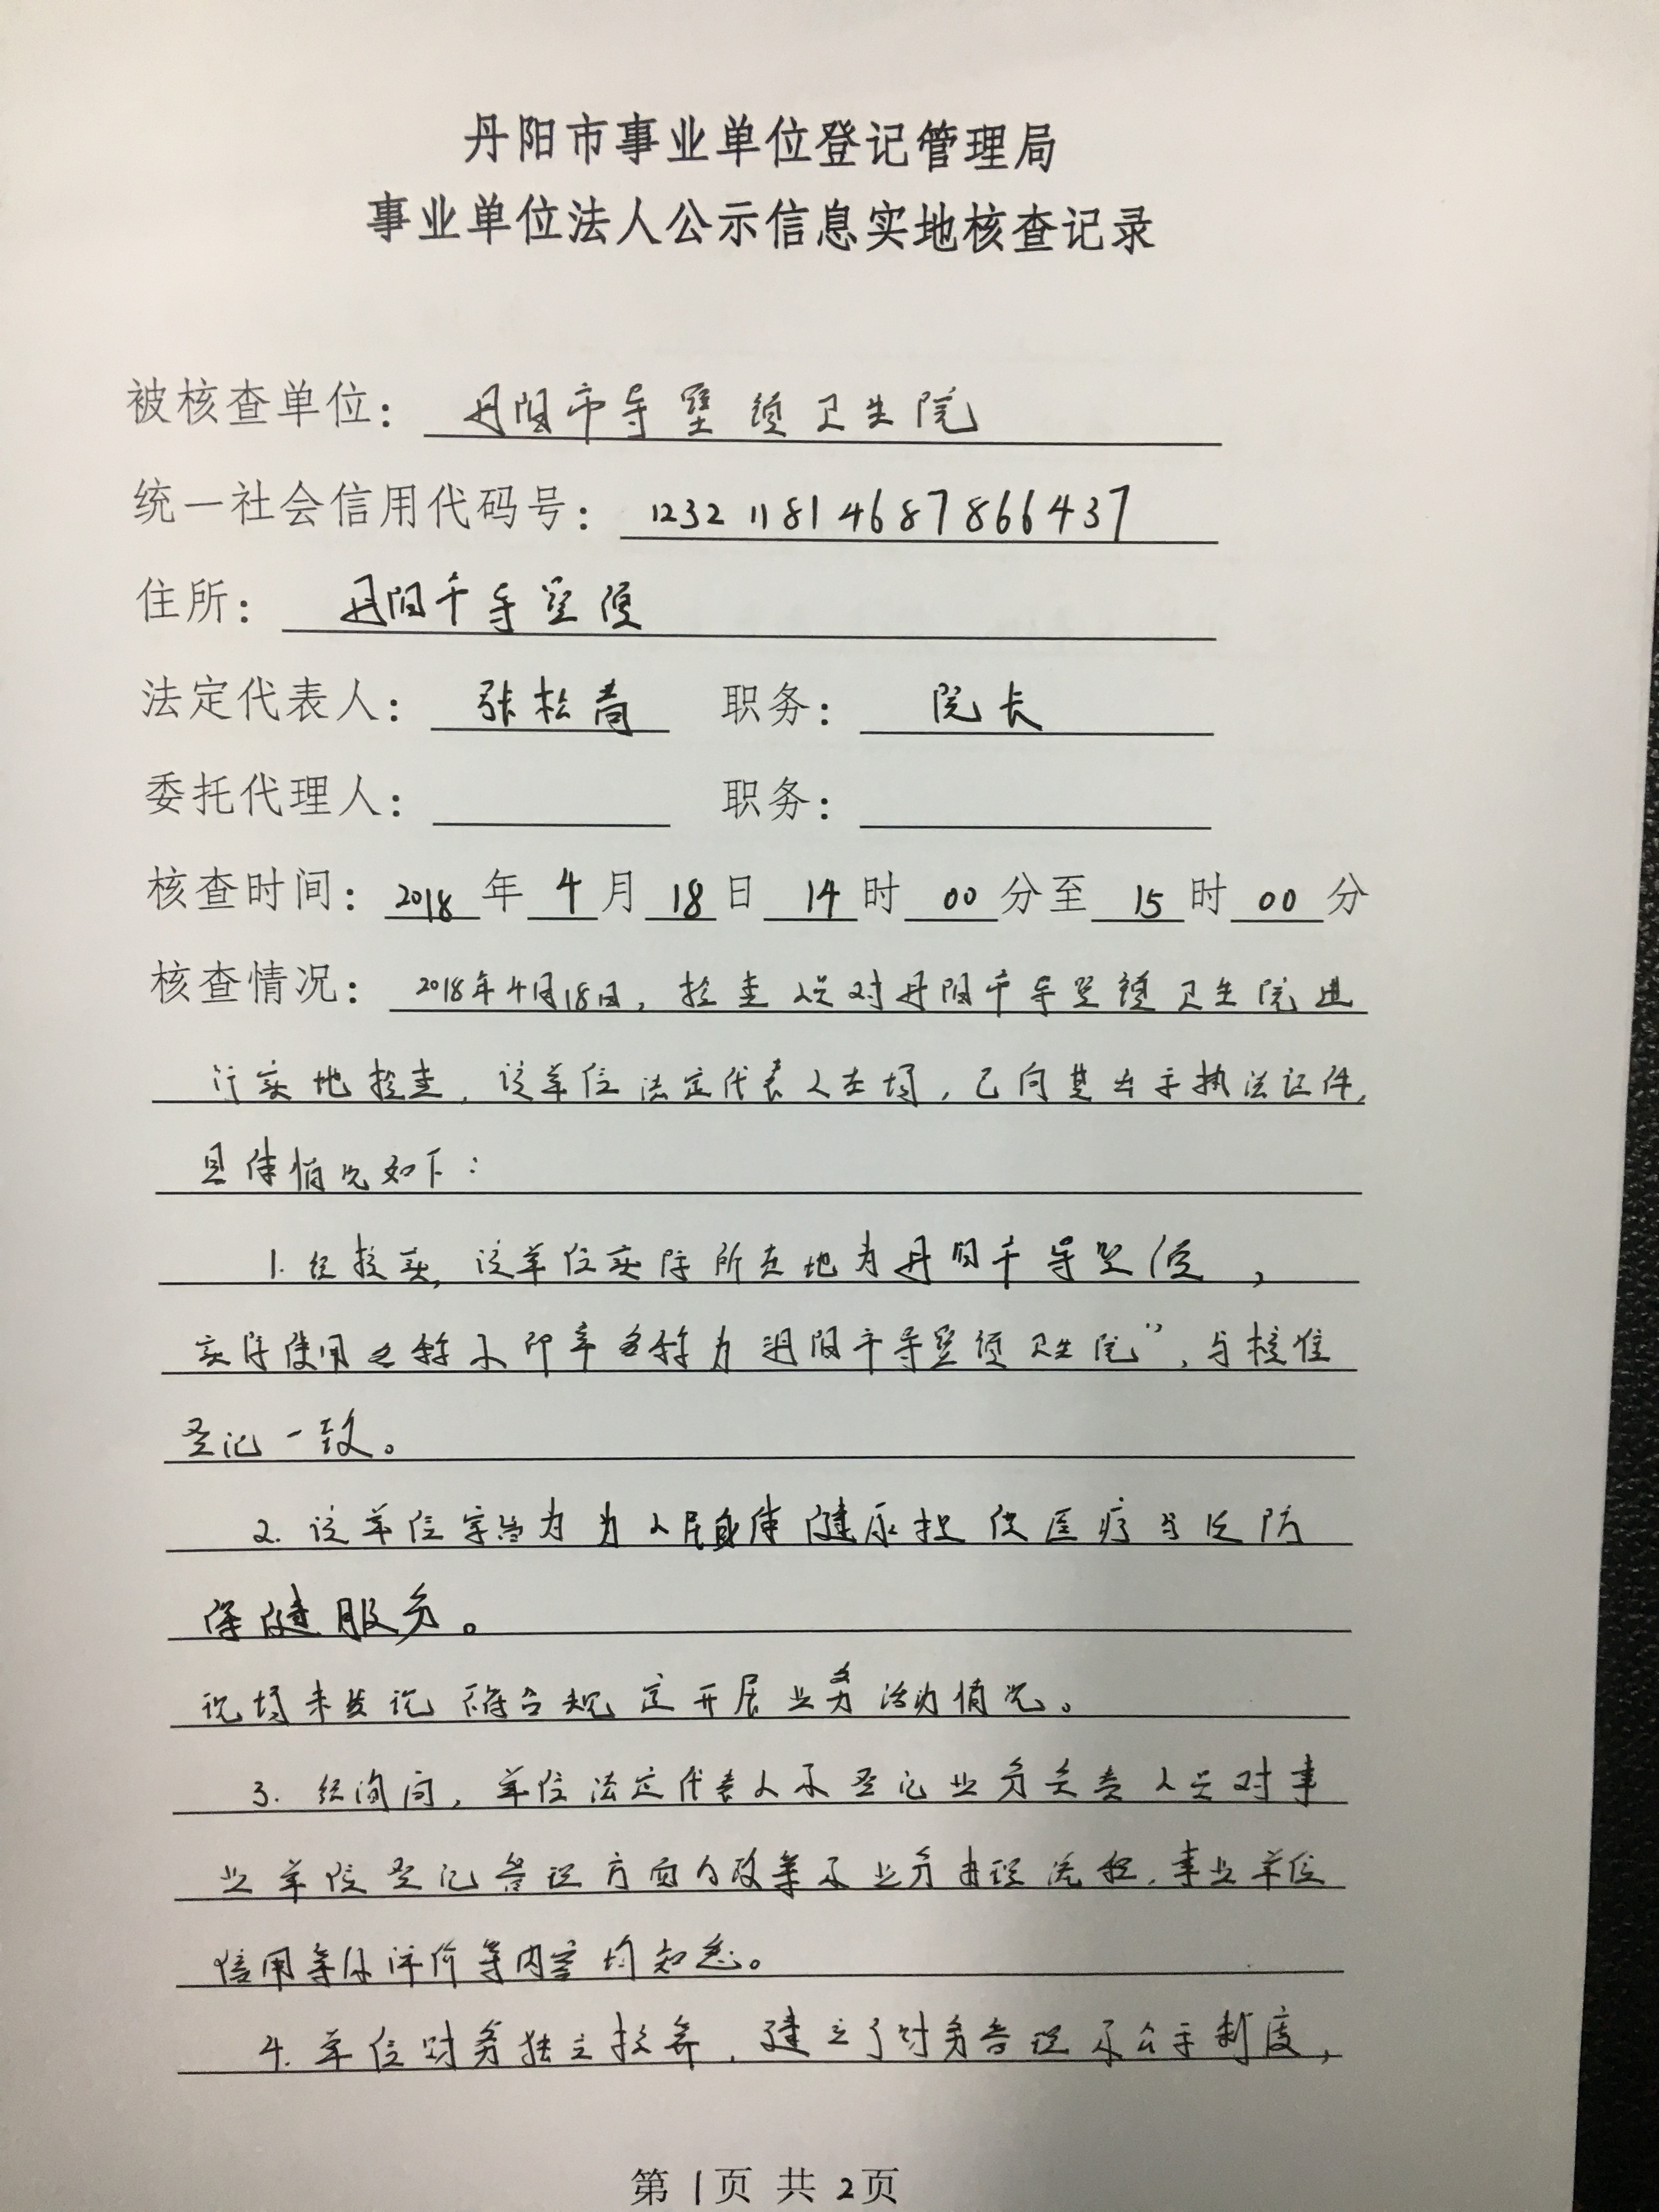 丹阳市事业单位登记管理局
事业单位法人公示信息实地核查记录
被核查单位：丹阳市导墅镇卫生院
统一社会信用代码号：123211814687866437
住所：丹阳市导墅镇
法定代表人：张松青 职务：院长
委托代理人： 职务：
核查时间：2018年4月18日14时00分至15时00分
核查情况：2018年4月18日，检查人员对丹阳市导墅镇卫生院进
行实地检查，该单位法定代表人在场，已向其出示执法证件，
具体情况如下：
1.经核实，该单位实际所在地为丹阳市导墅镇，
实际使用名称及印章名称为“丹阳市导墅镇卫生院”，与核准
登记一致。
2.该单位宗旨为为人民身体健康提供医疗与预防
保健服务。
现场未发现不符合规定开展业务活动情况。
3.经询问，单位法定代表人及登记业务负责人员对事
业单位登记管理方面的政策及业务办理流程，事业单位
信用等级评价等内容均知悉。
4.单位财务独立核算，建立了财务管理及公示制度，
第1页 共2页